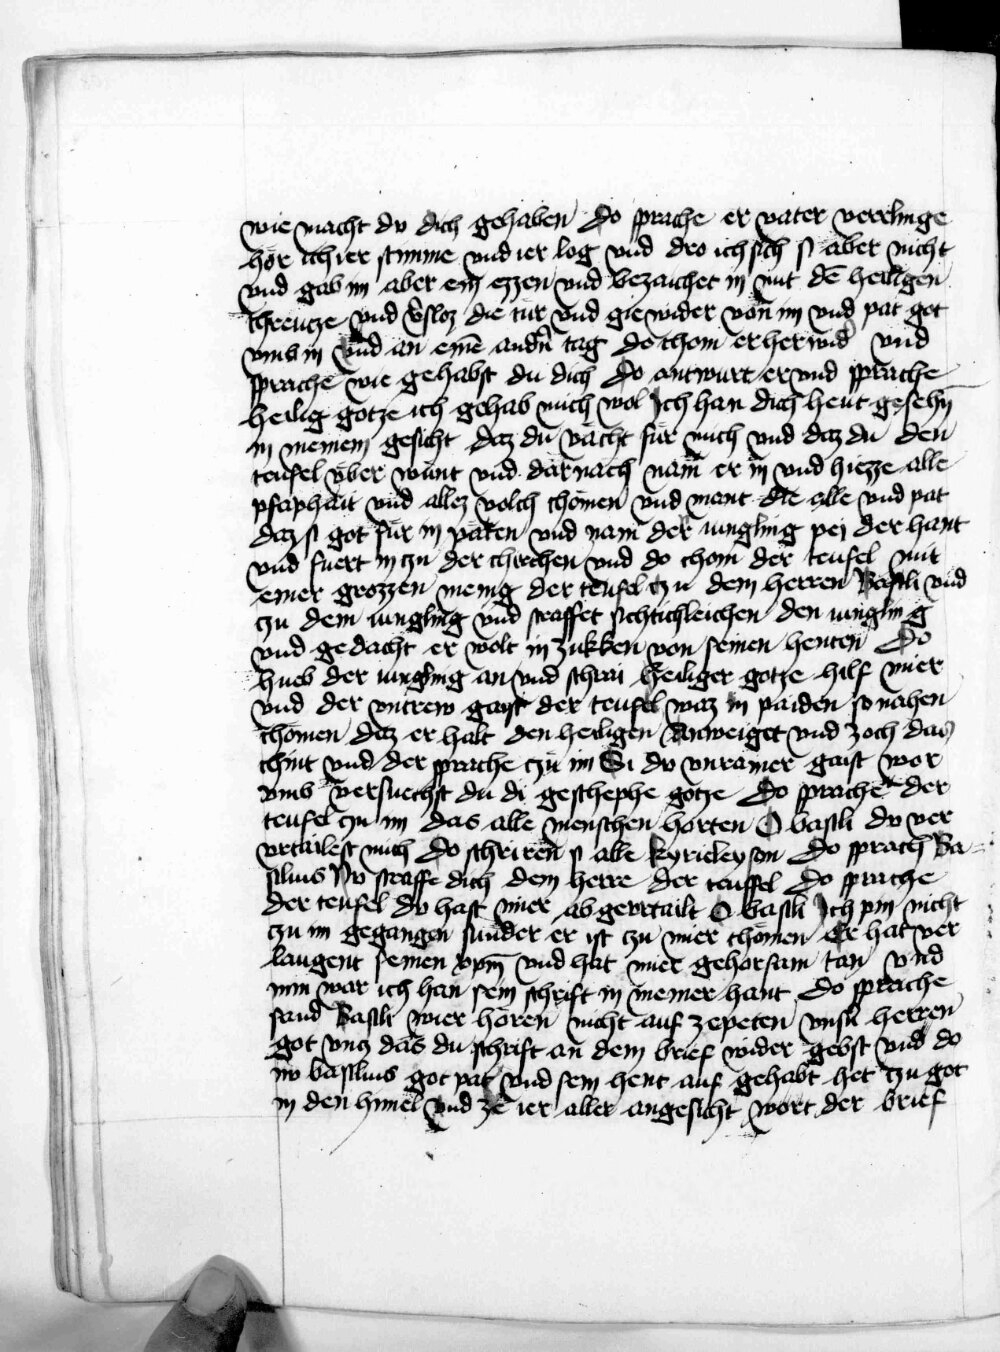 wie macht du dich gehaben Do sprache er vater verrlinge
hor ich ier stimme und ier log und dro ich sich si aber nicht
und gab im aber ein ezzen und bezaichet in mit dē heiligen
chreutze und v̄sloz die tür und gie wider von im und pat got
umb in und an einē andn̄ tag do chom er herwid und
sprache wie gehabst du dich Do antwurt er und sprache
heilig gotze ich gehab mich wol Ich han dich heut gesehn
in meinem gesicht daz du vächt für mich und daz du den
teufel über wünt und dar nach nam er in und hiezze alle
pfaphait und allez volch chömen und mant die alle und pat
daz si got für in päten und nam der iungling pei der hant
und fuert in zu der chirchen und do chom der teufel mit
einer grozzen menig der teufel zu dem herren Basili und
zu dem iungling und straffet sichtichleichen den iungling
und gedacht er wolt in zukken von seinen henten Do
hueb der iungling an und schrai heiliger gotze hilf mier
und der untrew gaist der teufel waz in paiden so nahen
chömen daz er halt den heiligen anweiget und zoch das
chint und der sprache zu im Si du unrainer gaist wor
umb versuechst du di geschephe gotze Do sprache der
teufel zu im das alle menschen horten O basili du ver
urtailest mich Do schriren si alle kyrieleyson Do sprach Ba-
silius Nv straffe dich dem herre der teuffel Do sprache
der teufel du hast mier ab geurtailt O basili Ich pin nicht
zu im gegangen sunder er ist zu mier chömen Er hat ver
laugent seinen xpm̄ und hat mier gehorsam tan und
nim war ich han sein schrift in meiner hant Do sprache
sand Basili wier hören nicht auf ze peten unsn̄ herren
got untz das du schrift an dem brief wider gebst und do
nv basilius got pat und sein hent auf gehabt het zu got
in den himel und ze ier aller angesicht wort der brief